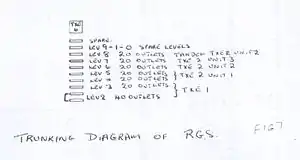 TXE
6
SPARE
LEV 9-1-0 SPARE LEVELS
LEV 8 20 OUTLETS TANDEM TXE 2 UNIT 2
LEV 7 20 OUTLETS TXE 2 UNIT 3
LEV 6 20 OUTLETS TXE 2 UNIT 2
LEV 5 20 OUTLETS } TXE 2 UNIT 1
LEV 4 20 OUTLETS
LEV 3 20 OUTLETS } TXE 1
LEV 2 40 OUTLETS
TRUNKING DIAGRAM OF R.G.S. FIG 7